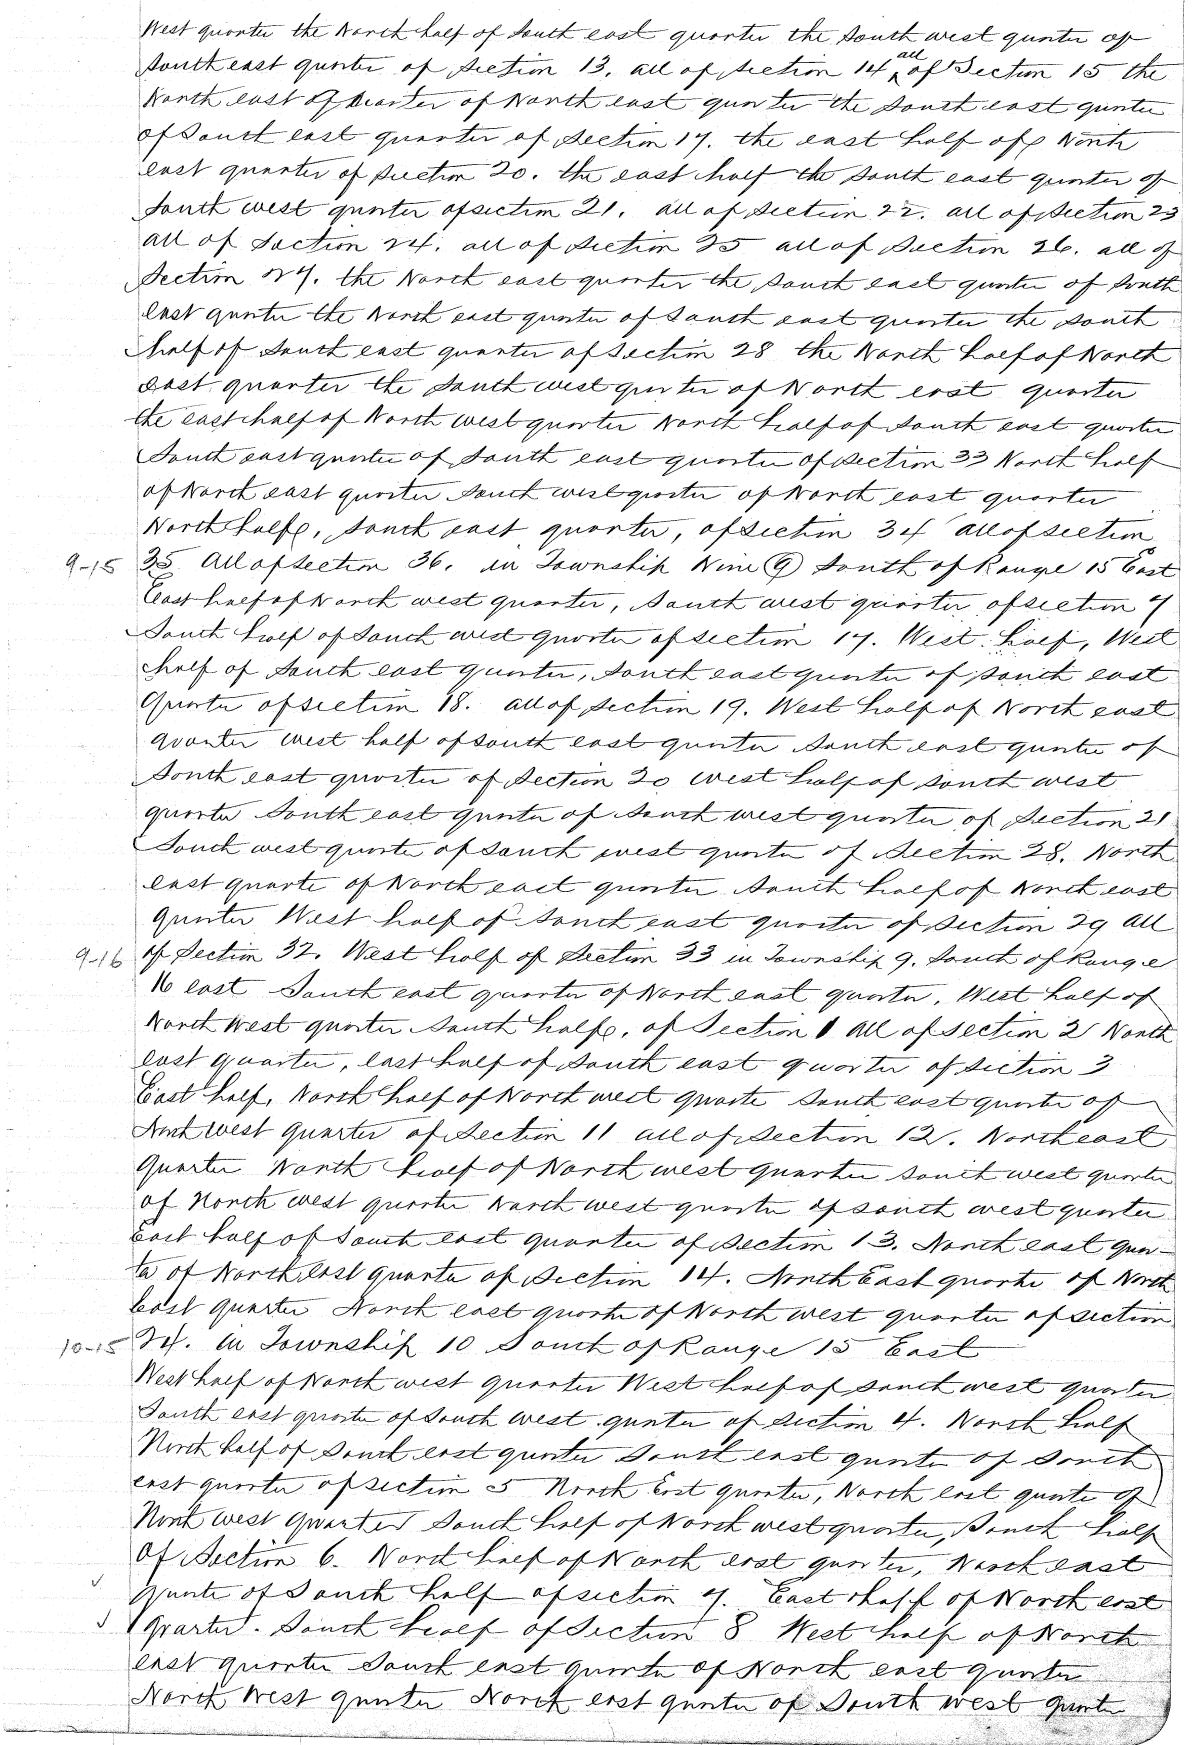 West quarter the North half of South east quarter the South west quarter of
South east quarter of Section 13. all of Section 14 all of Section 15 the
North east quarter of North east quarter the South east quarter
of South east quarter of Section 17. the east half of North
east quarter of Section 20. the east half the South east quarter of
South west quarter of section 21. all of Section 22. all of Section 23
all of Section 24. all of Section 25 all of Section 26. all of
Section 27. the North east quarter the South east quarter of South
east quarter the North east quarter of South east quarter the South
half of South east quarter of Section 28 the North half of North
east quarter the South west quarter of North east quarter
the east half of North west quarter North half of South east quarter
South east quarter of South east quarter of Section 33 North half
of North east quarter South west quarter of North east quarter
North half, South east quarter, of section 34 all of section
9-15 35 All of section 36. in Township Nine (9) South of Range 15 East
East half of North west quarter, South west quarter of section 7
South half of South west quarter of section 17. West half, West
half of South east quarter, South east quarter of South east
Quarter of section 18. all of Section 19. West half of North east
quarter west half of South east quarter South east quarter of
South east quarter of Section 20 West half of South west
quarter South east quarter of South west quarter of Section 21
South west quarter of South west quarter of Section 28. North
east quarte of North east quarter South half of North east
quarter West half of South east quarter of Section 29 All
9-16 of Section 32. West half of Section 33 in Township 9. South of Range
16 east South east quarter of North east quarter, West half of
North West quarter South half, of Section 1 All of Section 2 North
east quarter, east half of South east quarter of Section 3
East half, North half of North west quarte South east quarter of
North west quarter of Section 11 all of Section 12. North east
Quarter North half of North west quarter South west quarter
of North west quarter North west quarter of South west quarter
East half of South east quarter of Section 13. North east quar-
ter of North east quarter of Section 14. North East quarter of North
East quarter North east quarter of North west quarter of section
10-15 24. in Township 10 South of Range 15 East
West half of North west quarter West half of South west quarter
South east quarter of South west quarter of Section 4. North half
North half of South east quarter South east quarter of South
east quarter of section 5 North East quarter, North east quarte of
North west Quarter South half of North west quarter, South half
of Section 6. North half of North east quarter, North east
quarte of South half of section 7. East half of North east
Quarter. South half of Section 8 West half of North
east quarter South east quarter of North east quarter
North West quarter North east quarter of South west quarter